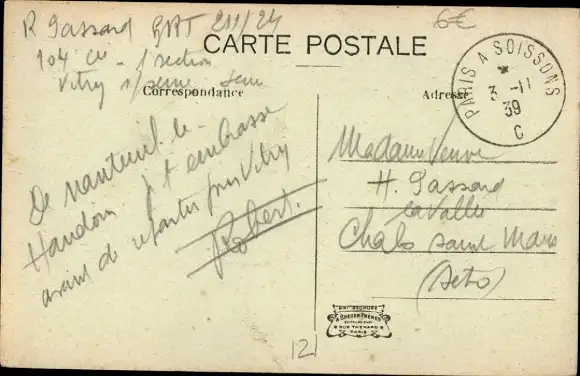 R Gassard GRT 211/24
104 Cie - 1 section
Vitry s/ Seine Seine
CARTE POSTALE
Correspondance
Adresse
6€
PARIS A SOISSONS
*
3 -11
39
C
De Nanteuil le-
Haudoin je t'embrasse
avant de repartir pour Vitry
Robert.
Madame Veuve
H. Gassard
La Vallée
Chalo Saint Mars
(S et O)
BREGER FRÈRES
9 RUE THÉNARD 9
PARIS
121